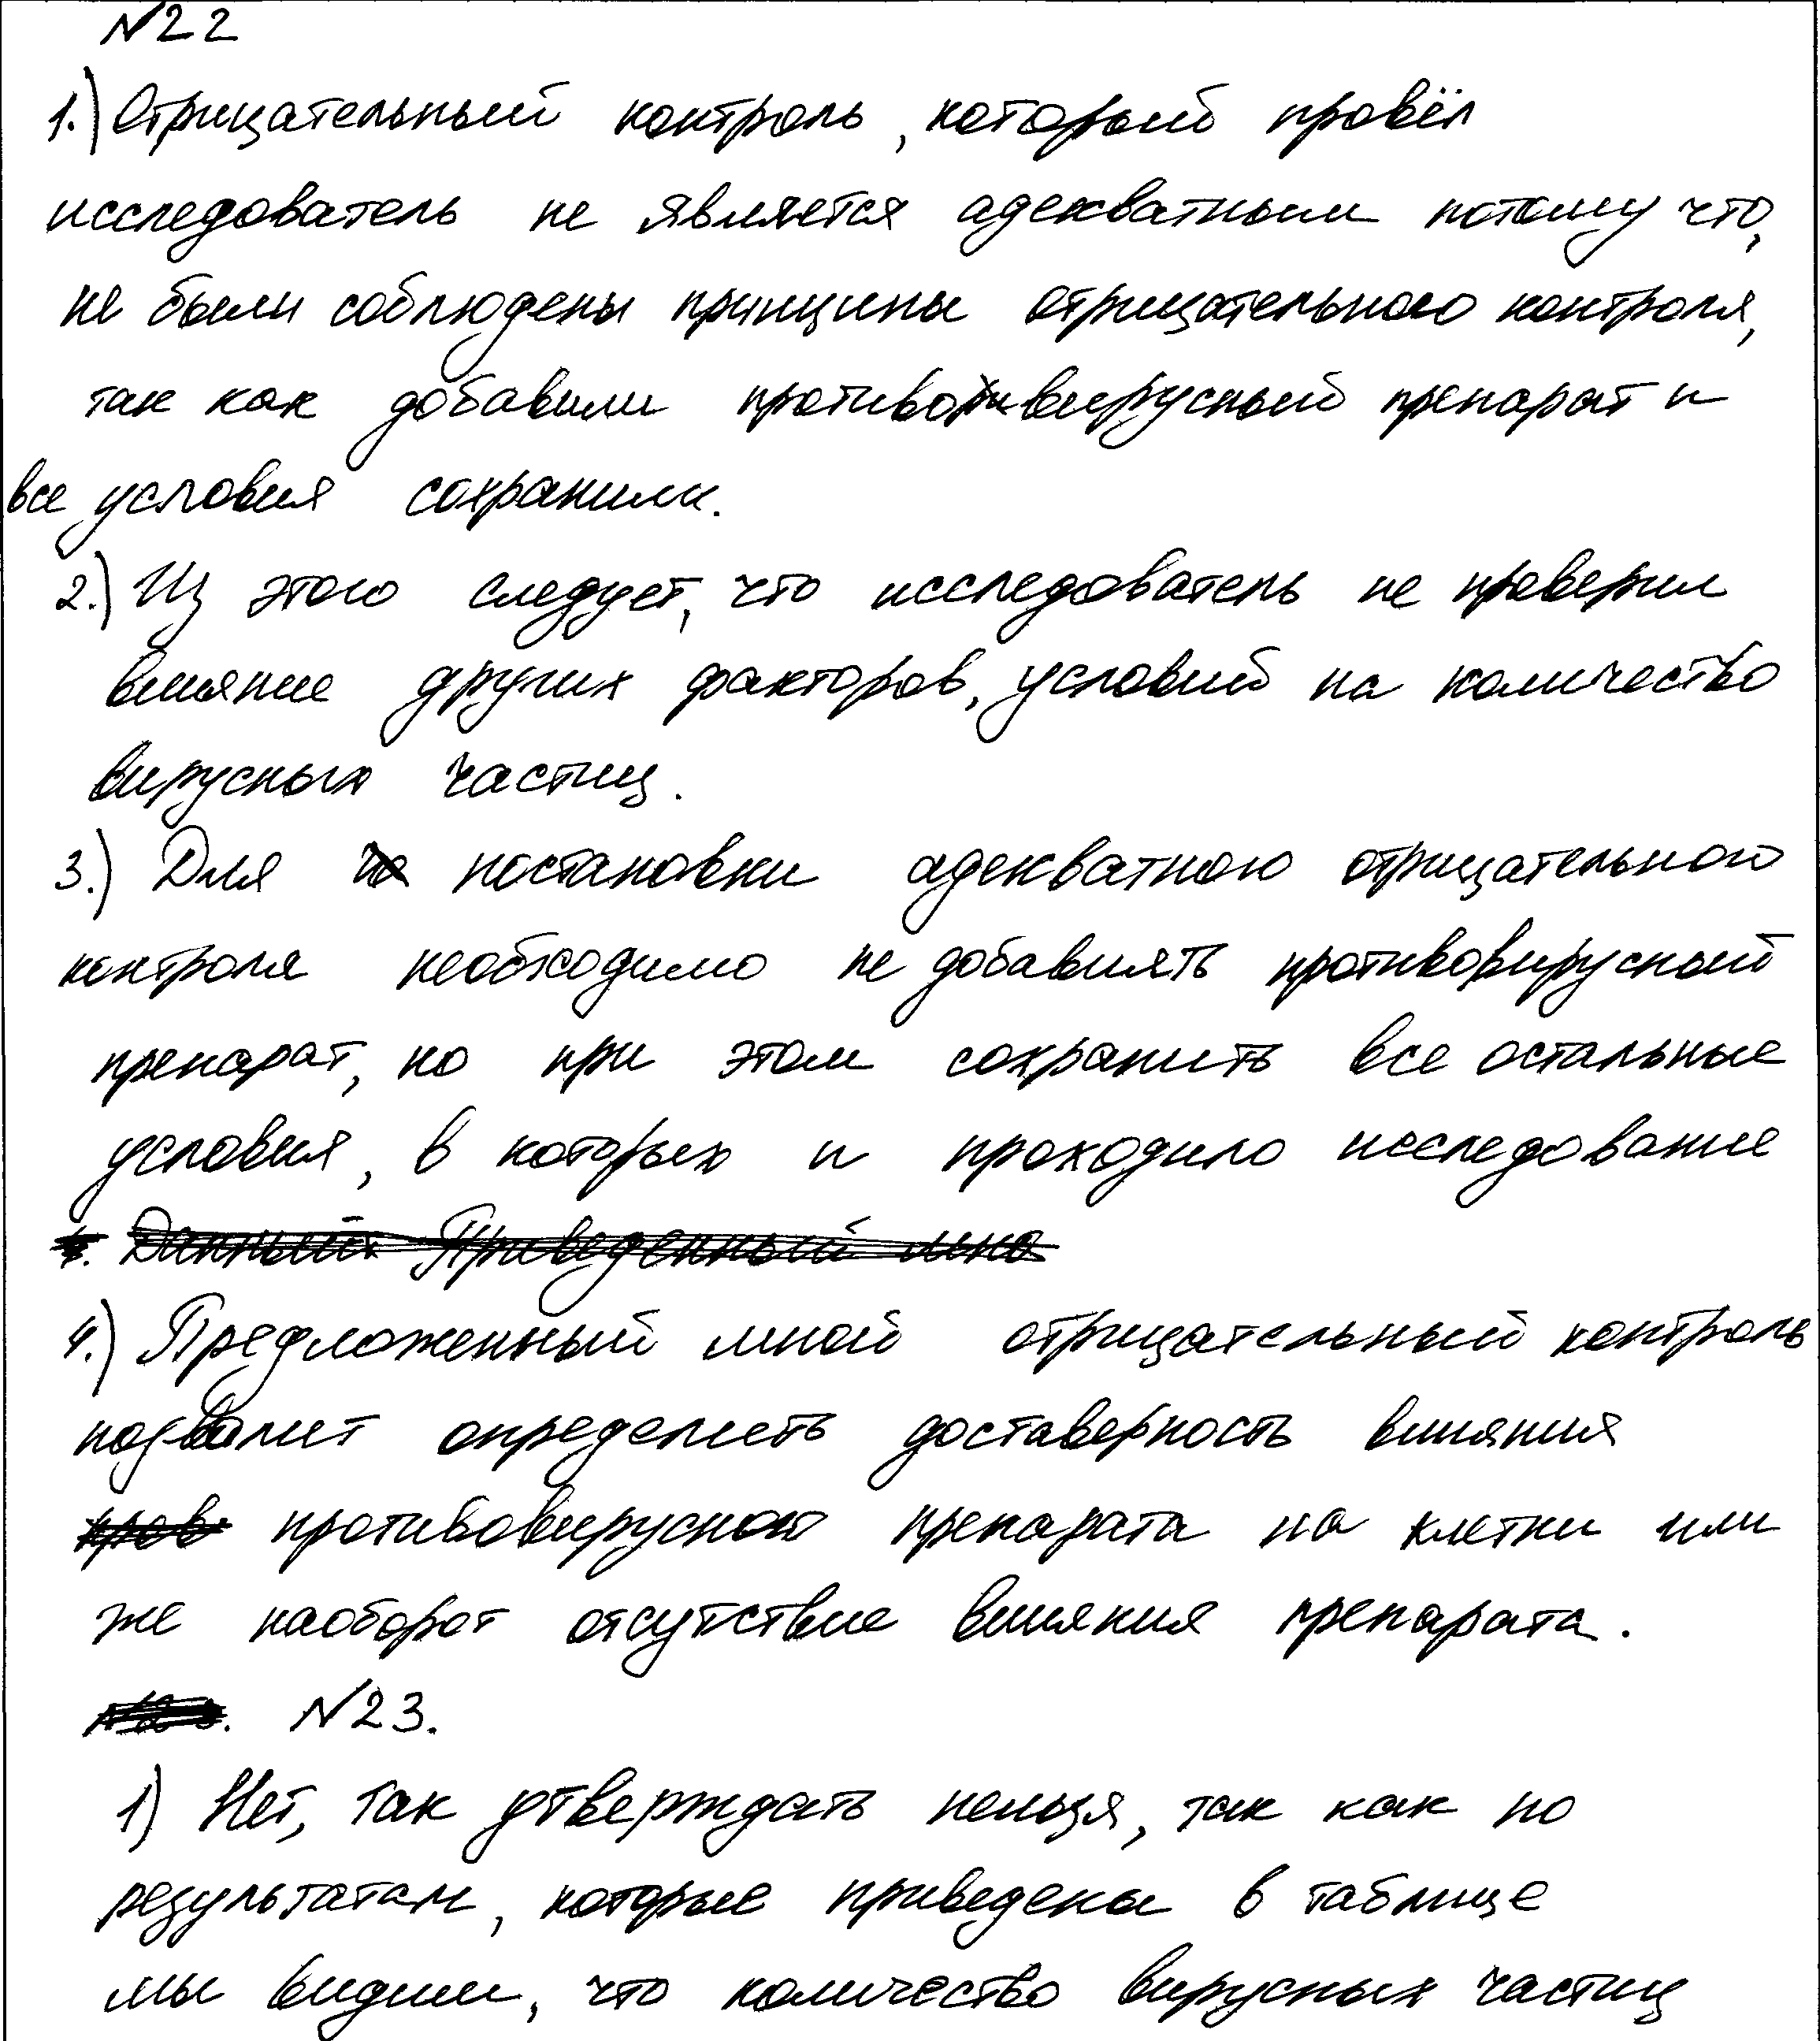 №22
1.) Отрицательный контроль, который провёл
исследователь не является адекватным потому что,
не были соблюдены принципы отрицательного контроля,
так как добавили противовирусный препарат и
все условия сохранили.
2.) Из этого следует, что исследователь не проверил
влияние других факторов, условий на количество
вирусных частиц.
3.) Для постановки адекватного отрицательного
контроля необходимо не добавлять противовирусный
препарат, но при этом сохранить все остальные
условия, в которых и проходило исследование
Данный Приведенный мно
4.) Предложенный мной отрицательный контроль
позволит определить доставерность влияния
противовирусного препарата на клетки или
же наоборот отсутствие влияния препарата.
№23.
1) Нет, так утверждать нельзя, так как по
результатам, которые приведены в таблице
мы видим, что количество вирусных частиц